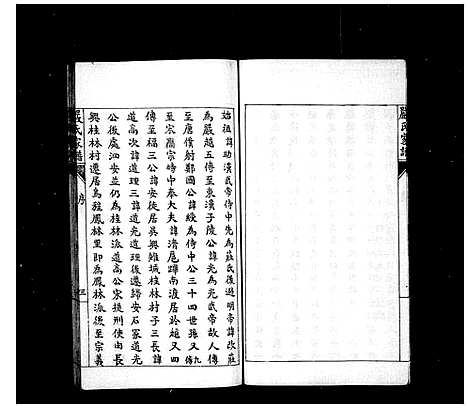 始祖諱助漢武帝侍中先為莊氏後避明帝諱改莊
為嚴越五傳至東漢子陵公諱光為光武帝故人傳
至唐僕射鄭國公諱綬為侍中公三十四世孫又九傳
至宗高宗時中奉大夫諱濟扈蹕南渡居於越又四
傳至福三公諱安徙居吳興雉城桂林村子三長諱
道高次諱道理三諱道光道理後遷歸安石冢道光
公後處泗安並仍為桂林派道高公宋提刑使由長
興桂林村遷居烏程鳳林里即為鳳林派後至宗義
嚴氏家譜
序
嚴氏家譜